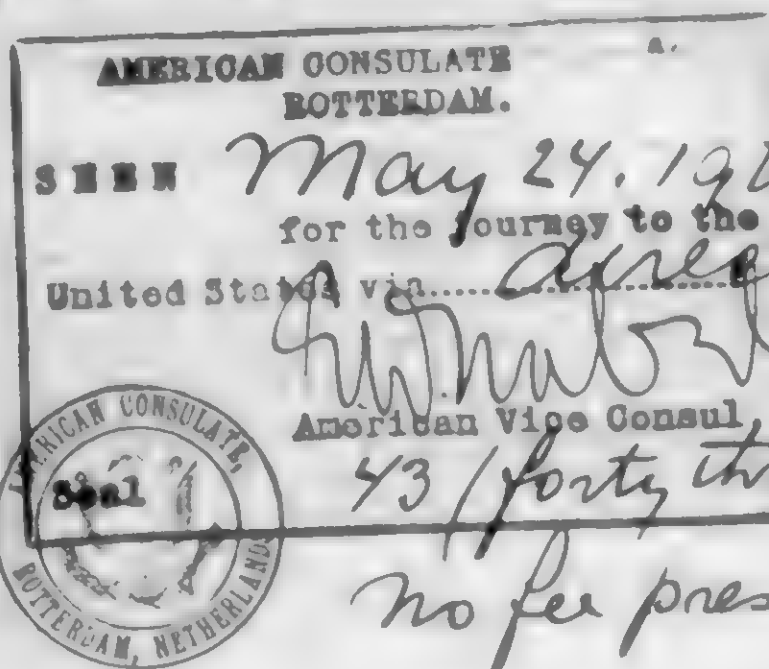 AMERICAN CONSULATE
ROTTERDAM.
SEEN May 24. 19
for the journey to the
United States via.....
American Vice Consul,
43 (forty th
no fee pres
AMERICAN CONSULATE,
Seal
ROTTERDAM, NETHERLANDS